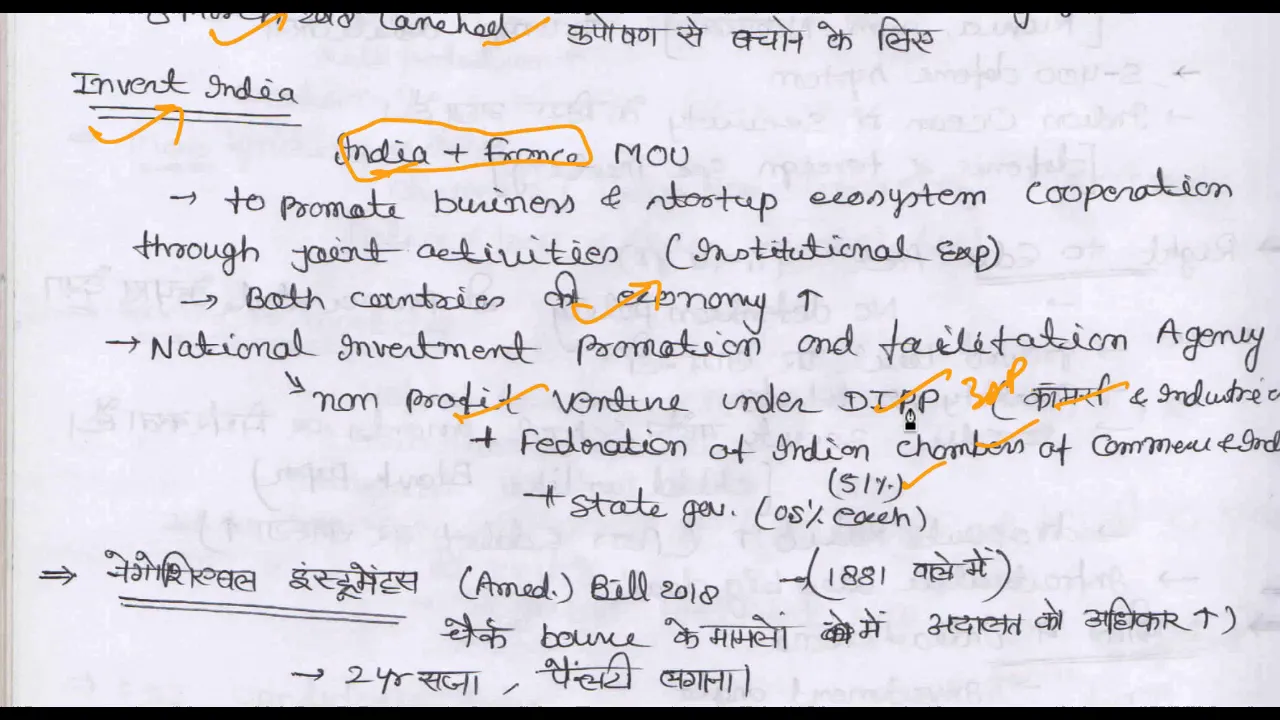 8 March 2018 Lanched कुपोषण से बचाने के लिए
Invest India
India + France MOU
→ to promote business & startup ecosystem cooperation
through joint activities (Institutional Exp)
→ Both countries की economy ↑
→ National Investment Promotion and facilitation Agency
non profit venture under DIPP (कॉमर्स & Industri
+ Federation of Indian Chambers of Commerce & Ind
(51%)
+ State gov. (05% each)
⇒ नेगोशिएबल इंस्ट्रूमेंट्स (Amed.) Bill 2018 → (1881 वाले में)
चैक bounce के मामलों में अदालत को अधिकार ↑)
→ 2 yr सजा, पेनल्टी लगाना।